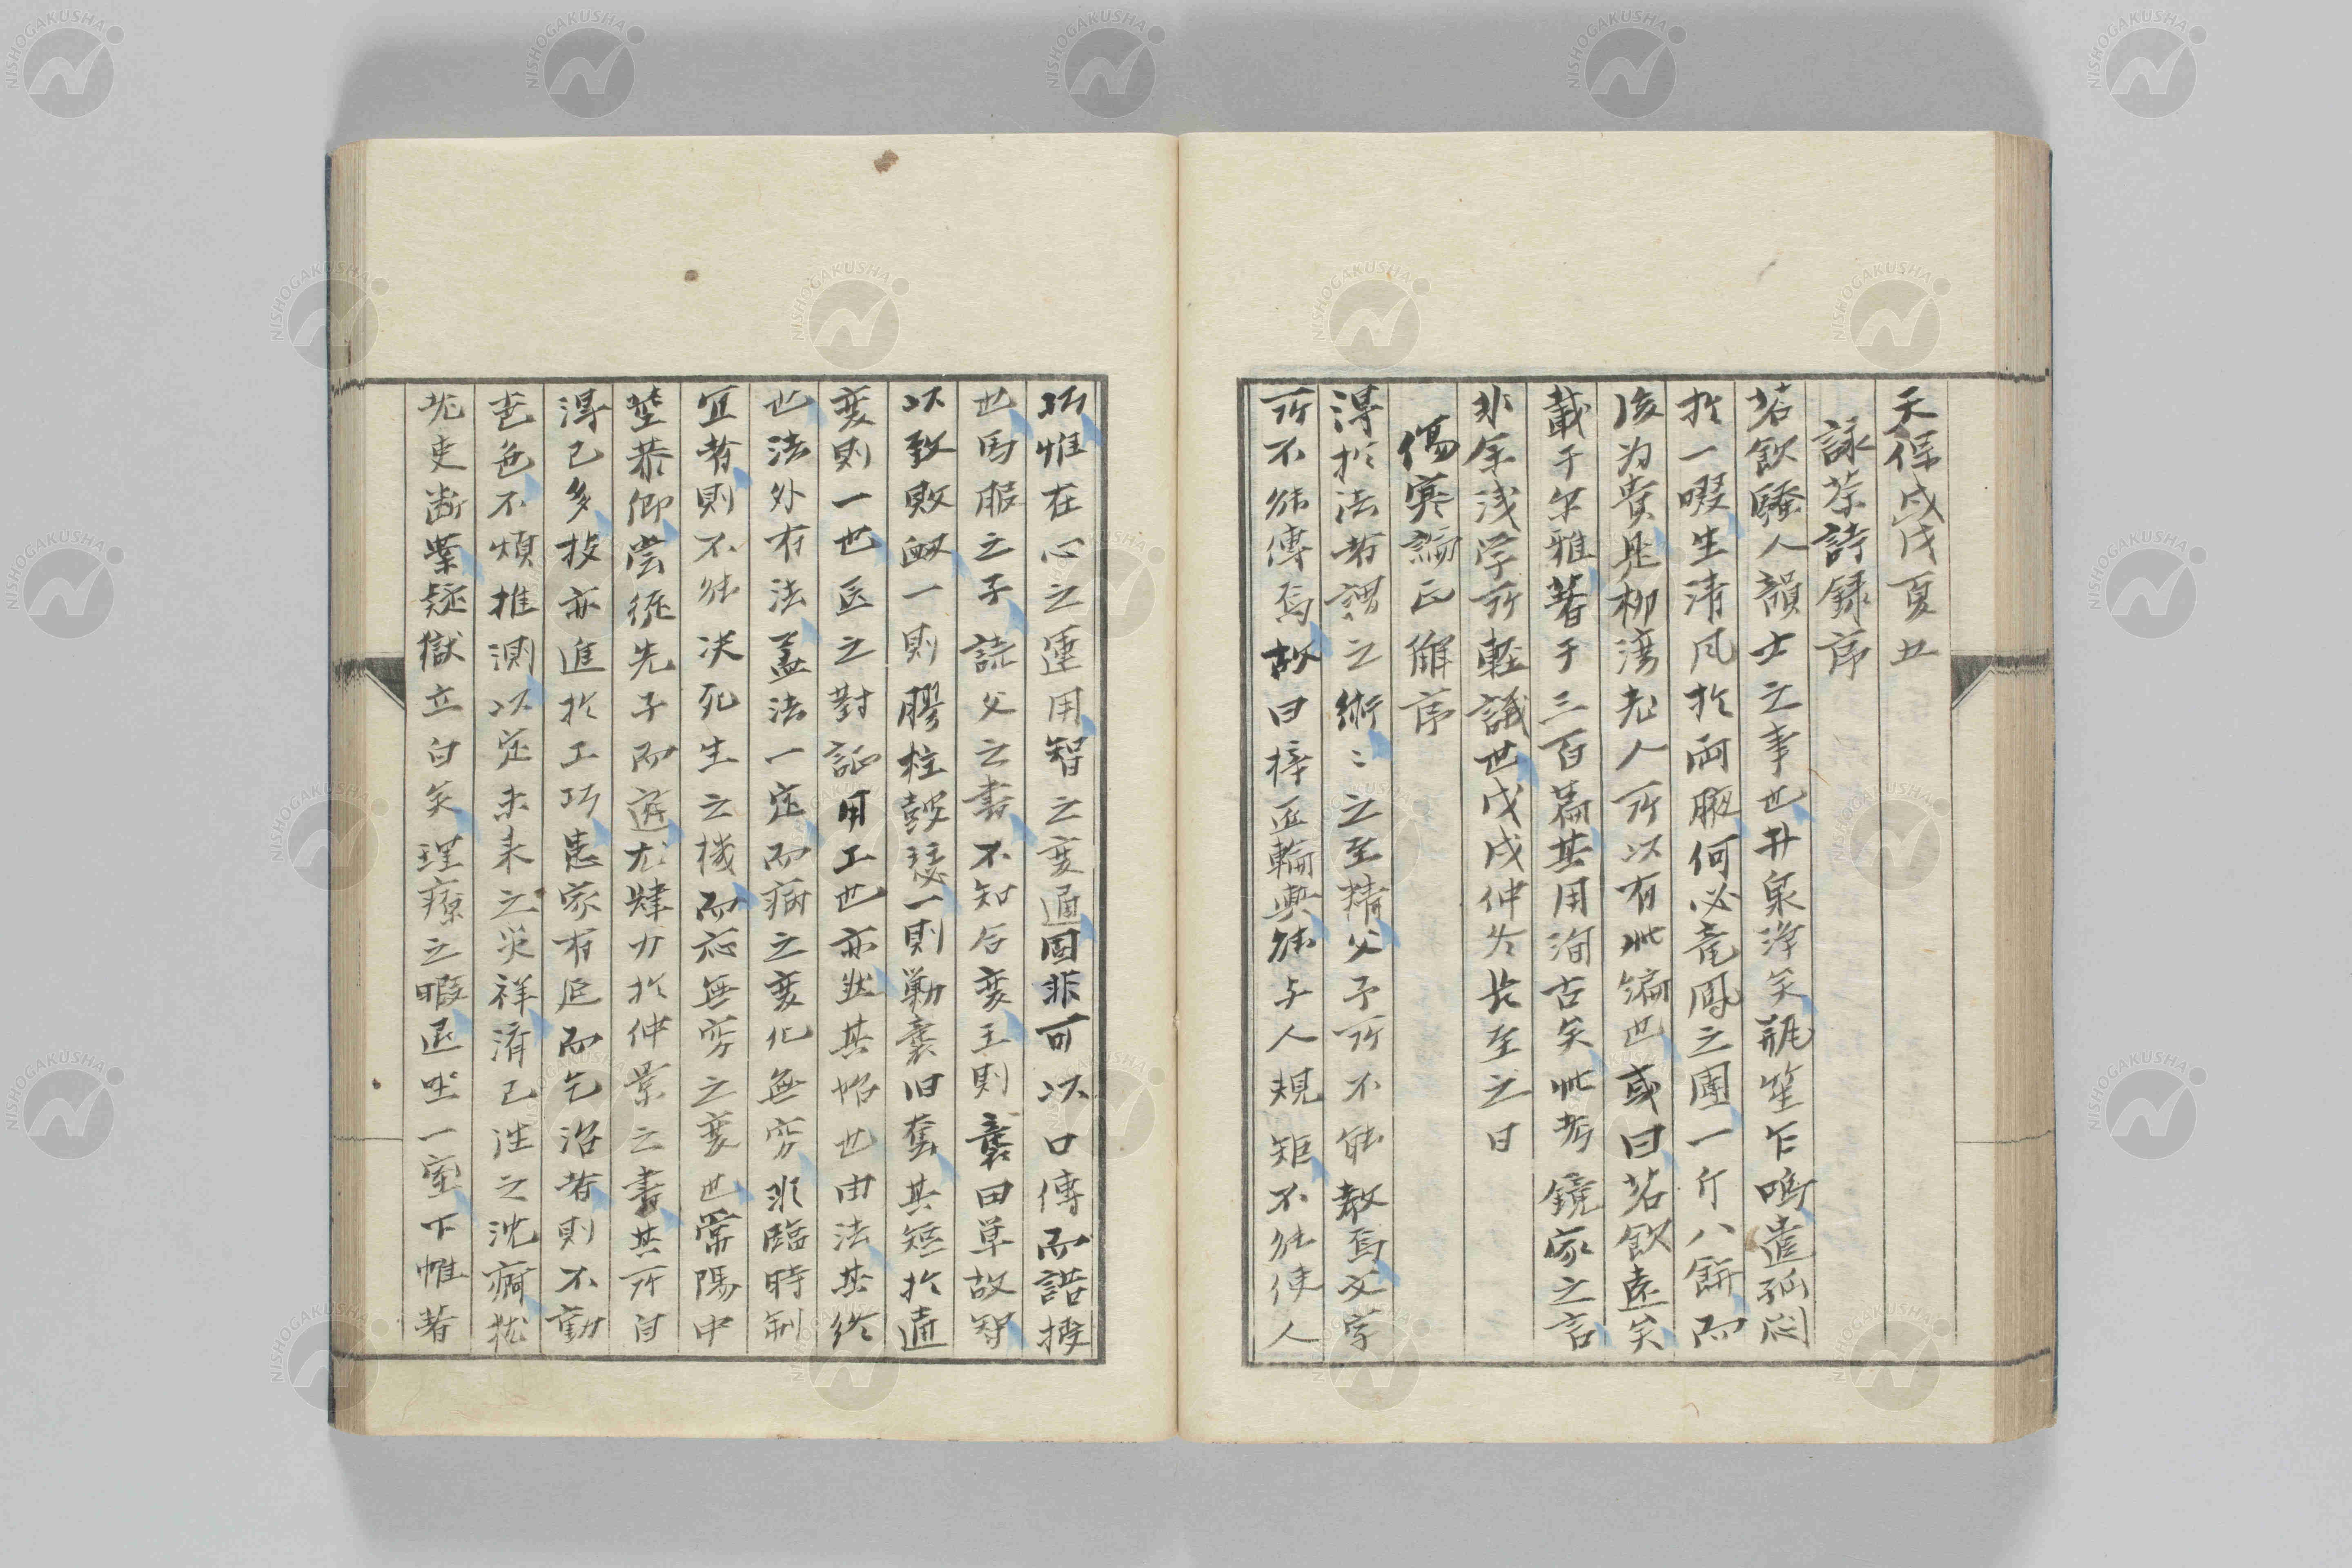 天保戊戌夏五
詠茶詩録序
茗飲騒人韻士之事也井泉洋矣瓶笙乍鳴遣孤悶
於一啜生清風於両腋何必竜鳳之團一斤八餅而
後为貴是柳湾老人所以有此編也或曰茗飲遠矣
載于尔雅著于三百篇其用洵古矣此考鏡家之言
非余浅学所軽議也戊戌仲冬長至之日
傷寒論正解序
得於法者謂之術々之至精父子所不能教焉文字
所不能傳焉故曰梓匠輪輿能与人規矩不能使人
巧惟在心之運用智之変通固非可以口傳而話授
也馬服之子読父之書不知合変王則襄田単故智
以致敗衂一則膠柱鼓瑟一則勦襲旧套其短於通
変則一也医之對証用工也亦然其始也由法其終
也法外有法盖法一定而病之変化無窮非臨時制
宜者則不能决死生之機而応無窮之変也常陽中
埜恭卿嘗従先子而遊尤肆力於仲景之書其所自
得已多技亦進於工巧患家有延而乞治者則不動
声色不煩推測以定未来之災祥済已往之沈痾猶
老吏断案疑獄立白矣理療之暇退坐一室下帷著